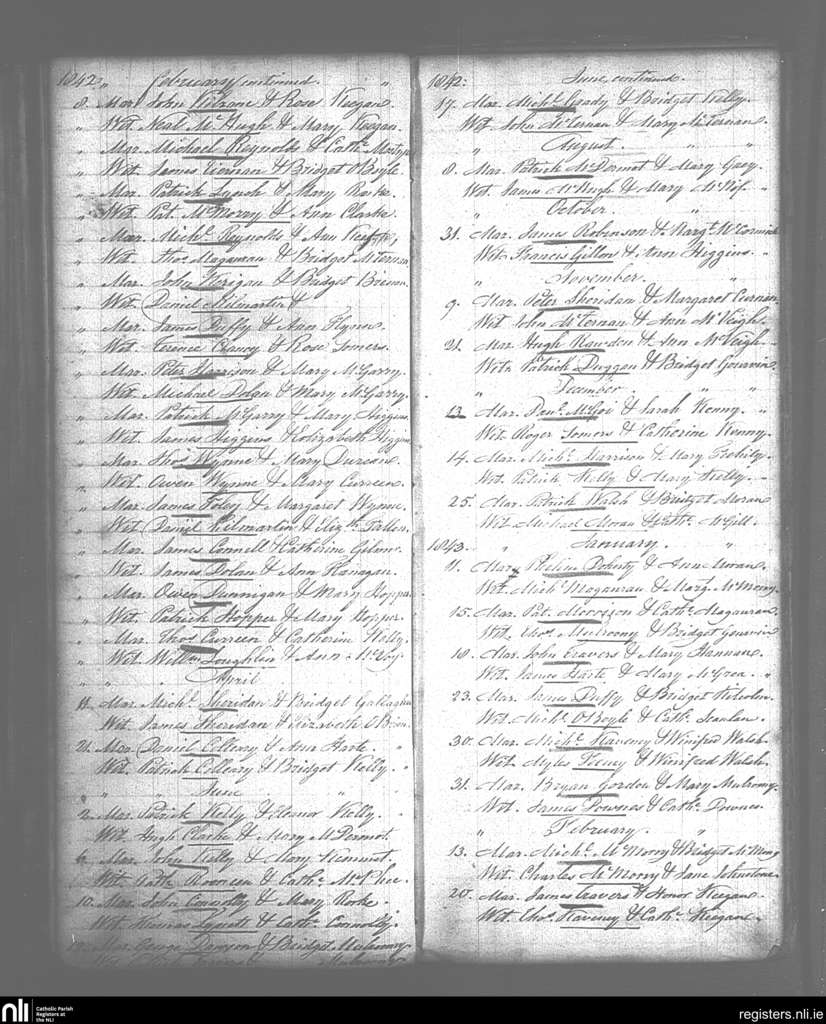 1842 " February continued. "
8. Mar. John & Rose Keegan.
" Wit. Neal McHugh & Mary Keegan.
" Mar. Michael Reynolds & Cath:
" Wit. James Tiernan & Bridget O'Boyle.
" Mar. Patrick Lynch & Mary Rorke.
" Wit. Pat. McMorry & Ann Clarke.
" Mar. Michl. Reynolds & Ann
" Wit. Thos Magauran & Bridget
" Mar. John Kerigan & Bridget
" Wit. Daniel Kilmartin &
" Mar. James Duffy & Ann Flynn.
" Wit. Terence Clancy & Rose Somers.
" Mar. Peter Harrison & Mary McGarry.
" Wit. Michael Dolan & Mary McGarry.
" Mar. Patrick McGarry & Mary Higgins.
" Wit. James Higgins & Elizabeth Higgins
" Mar. Thos Wynne & Mary Curreen.
" Wit. Owen Wynne & Mary Curreen.
" Mar. James Foley & Margaret Wynne.
" Wit. Daniel Kilmartin & Elizth. Fallen.
" Mar. James Connell & Catherine Gilmc.
" Wit. James Dolan & Ann Flanagan.
" Mar. Owen Dunnigan & Mary Hopper
" Wit. Patrick Hopper & Mary Hopper.
" Mar. Thos Curreen & Catherine Kelly.
" Wit. Willm Loughlin & Ann
" " April
11. Mar. Michl. Sheridan & Bridget Gallagher
Wit. James Sheridan & Elizabeth O'Brien.
21. Mar. Daniel Cilleary & Ann Harte. "
Wit. Patrick Cilleary & Bridget Kelly. "
" " June "
2. Mar. Patrick Kelly & Eleanor Kelly. "
Wit. Hugh Clarke & Mary McDermot.
Mar. John Kelly & Mary
Wit. & Cathe.
10. Mar. John Connolly & Mary Rorke. "
Wit. Thomas Lynott & Cath: Connolly.
Mar. George Dawson & Bridget Mulrooney
1842: June, continued.
17. Mar. Michl. Grady & Bridget Kelly.
Wit. John McTernan & Mary McTernan.
" August. " "
8. Mar. Patrick McDermot & Mary
Wit. James McHugh & Mary "
" October. "
31. Mar. James Robinson & Margt. McCormick
Wit. Francis Gillon & Ann Higgins. "
" November. "
9. Mar. Peter Sheridan & Margaret Curnan.
Wit. John McTernan & Ann McVeigh.
21. Mar. Hugh Rawdon & Ann McVeigh.
Wit. Patrick Duggan & Bridget Gouravin
" December. " "
13. Mar. Denn. McGoi & Sarah Kenny. "
Wit. Roger Somers & Catherine Kenny.
14. Mar. Michl. Harrison & Mary
Wit. Patrick Kelly & Mary Kelly. "
25. Mar. Patrick Walsh & Bridget Moran
Wit. Michael Moran & Cath: McGill.
1843. " January. "
11. Mar. Phelim Doherty & Ann Moran.
Wit. Michl Magauran & Margt. McMorry.
15. Mar. Pat. Morrison & Cath: Magauran.
Wit. Thos. Mulroony & Bridget Gouravin
18. Mar. John Travers & Mary Hannan.
Wit. James Harte & Mary
23. Mar. James Duffy & Bridget
Wit. Michl. O'Boyle & Cath: Scanlan.
30. Mar. Michl. Flaveney & Winifred Walsh.
Wit. Myles Feeney & Winifred Walsh.
31. Mar. Bryan Gordon & Mary Mulrony.
Wit. James Downes & Cath: Downes.
" February. "
13. Mar. Michl. McMorry & Bridget McMorry
Wit. Charles McMorry & Jane Johnstone.
20. Mar. James Travers & Honor Keegan.
Wit. Thos. Flaveney & Cath: Keegan.
nli Catholic Parish Registers at the NLI
registers.nli.ie